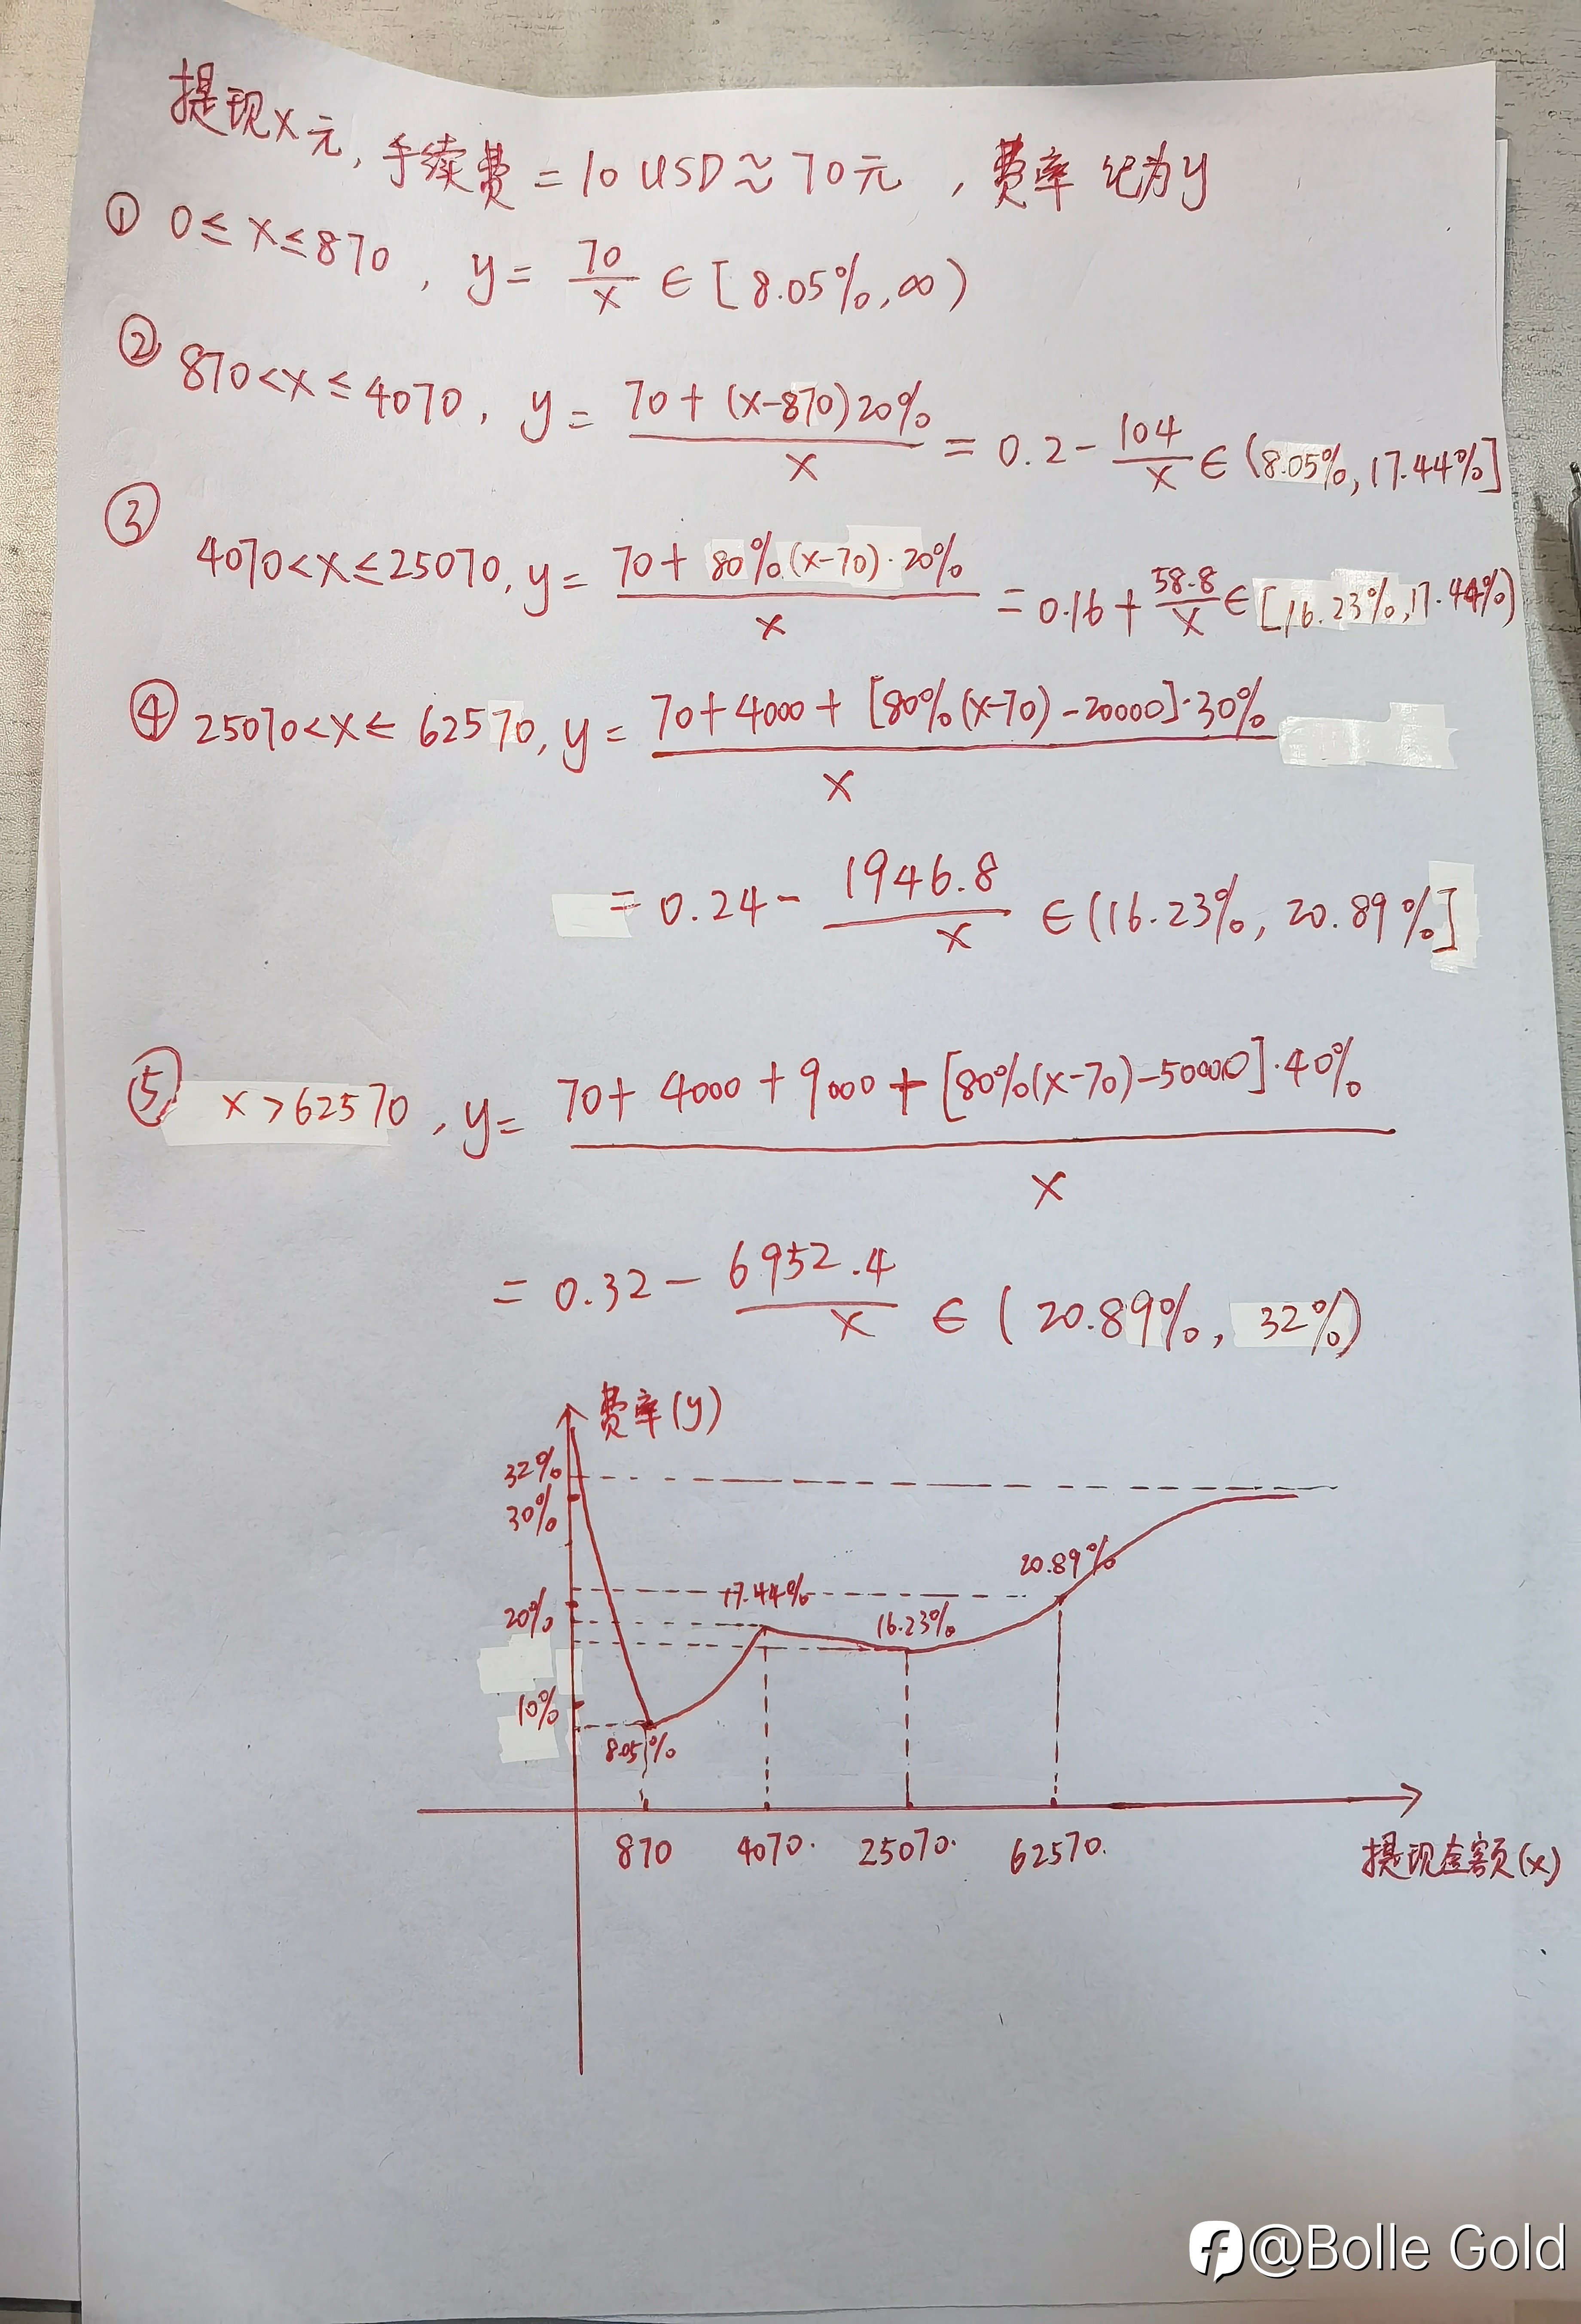 提现x元,手续费=10USD≈70元,费率记为y
① 0≤x≤870, y=70/x∈[8.05%,∞)
② 870<x≤4070, y=70+(x-870)20%/x=0.2-104/x∈(8.05%,17.44%]
③ 4070<x≤25070, y=70+80%(x-70)·20%/x=0.16+58.8/x∈[16.23%,17.44%)
④ 25070<x≤62570, y=70+4000+[80%(x-70)-20000]·30%/x
=0.24-1946.8/x∈(16.23%,20.89%]
⑤ x>62570, y=70+4000+9000+[80%(x-70)-50000]·40%/x
=0.32-6952.4/x∈(20.89%,32%)
费率(y)
32%
30%
20.89%
17.44%
20%
16.23%
10%
8.05%
870 4070. 25070. 62570.
提现金额(x)
@Bolle Gold